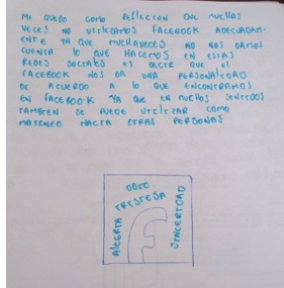 ME QUEDO COMO REFLECION QUE MUCHAS
VECES NO UTILIZAMOS FACEBOOK ADECUADAM-
ENTE YA QUE MUCHAVECES NO NOS DAMOS
CUENTA LO QUE HACEMOS EN ESTAS
REDES SOCIALES ES DECIR QUE EL
FACEBOOK NOS DA UNA PERSONALIDAD
DE ACUERDO A LO QUE ENCONTRAMOS
EN FACEBOOK YA QUE EN MUCHOS SENTIDOS
TAMBIEN SE PUEDE UTILIZAR COMO
MATONEO HACIA OTRAS PERSONAS
ODIO
TRISTESA
ALEGRIA
SINCERIDAD
F